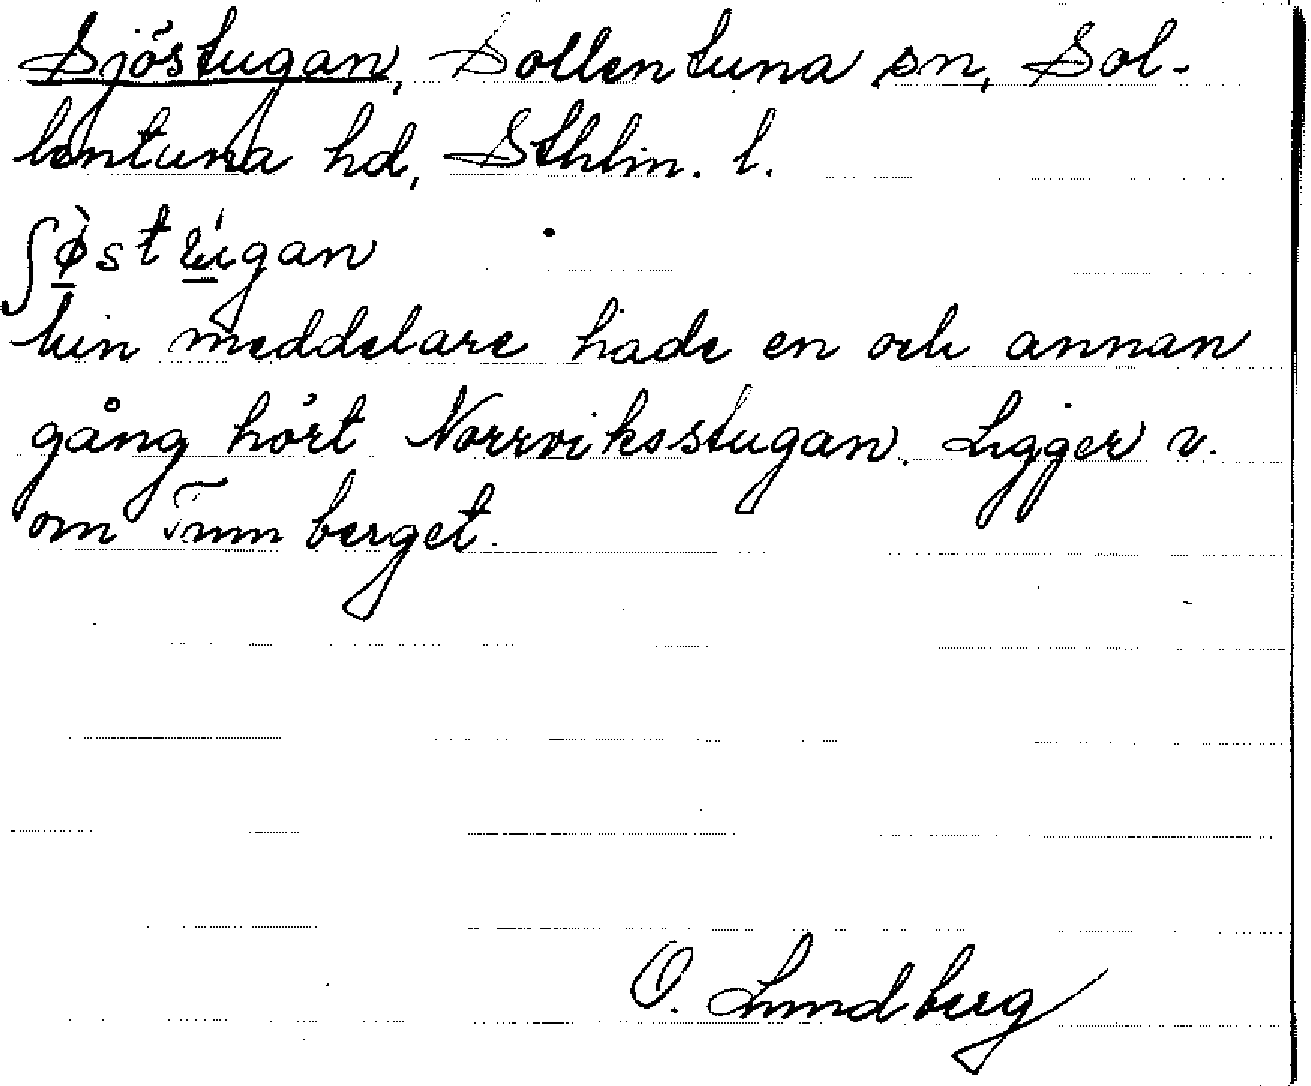 Sjöstugan, Sollentuna sn, Sol-
lentuna hd, Sthlm. l.
ʃø̀stúgan
Min meddelare hade en och annan
gång hört Norrviksstugan. Ligger v.
om Tunberget.
O. Lundberg